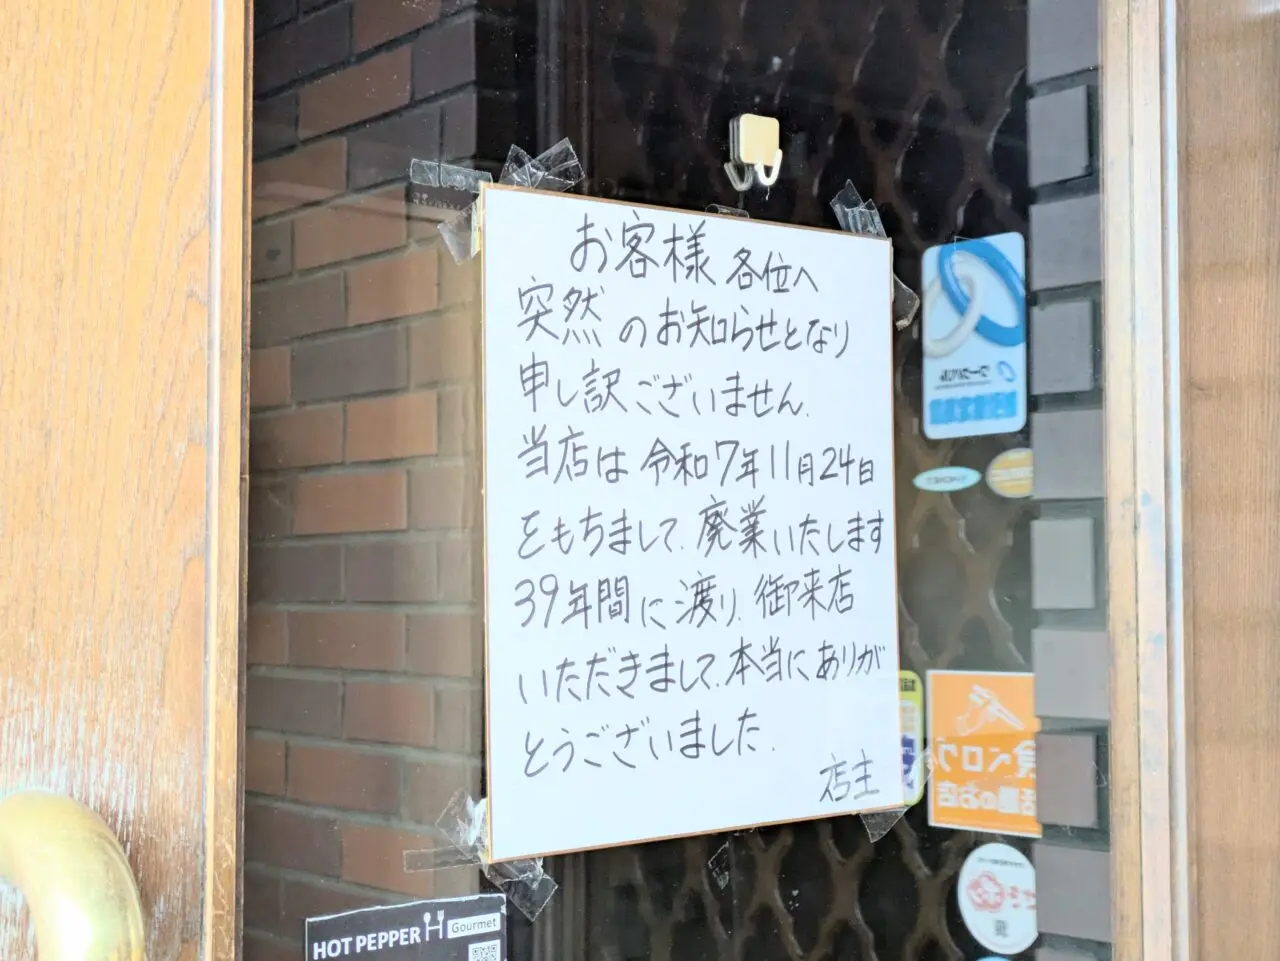 お客様 各位へ
突然のお知らせとなり
申し訳ございません.
当店は令和7年11月24日
をもちまして、廃業いたします
39年間に渡り、御来店
いただきまして、本当にありが
とうございました.
店主
HOT PEPPER Gourmet
食べログ